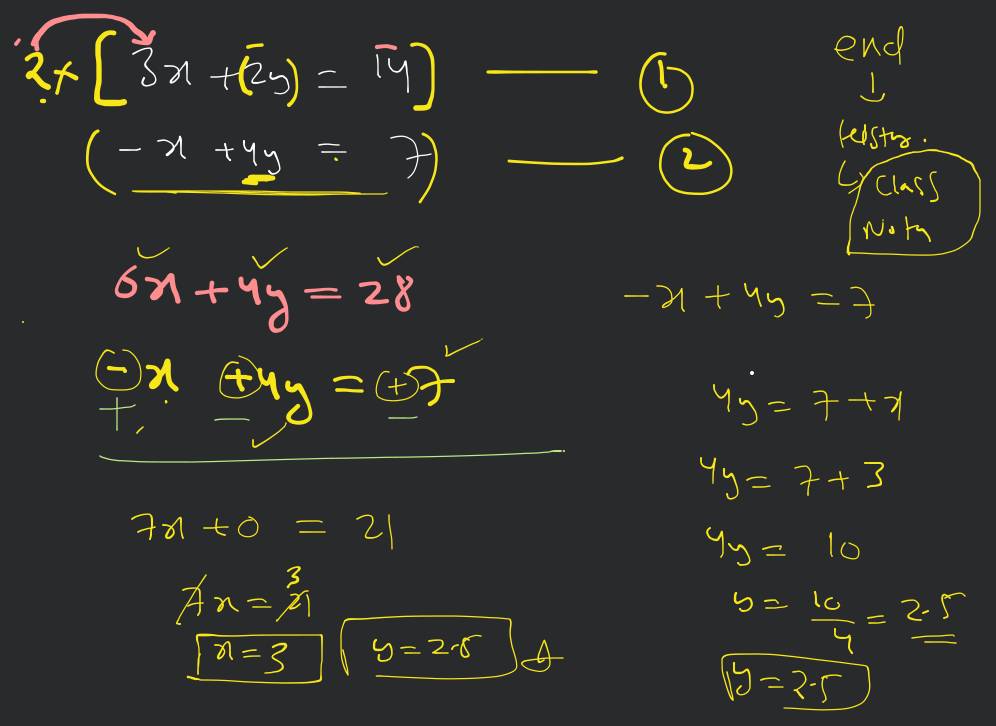 2 × [ 3x + (2y) = 14 ] —— ①
( -x + 4y = 7 ) —— ②
6x + 4y = 28
-x +4y = +7
+ - -
7x + 0 = 21
7x = 21 3
x = 3
y = 2.5
end
↓
↳ Class
Note
-x + 4y = 7
4y = 7 + x
4y = 7 + 3
4y = 10
y = 10/4 = 2.5
y = 2.5